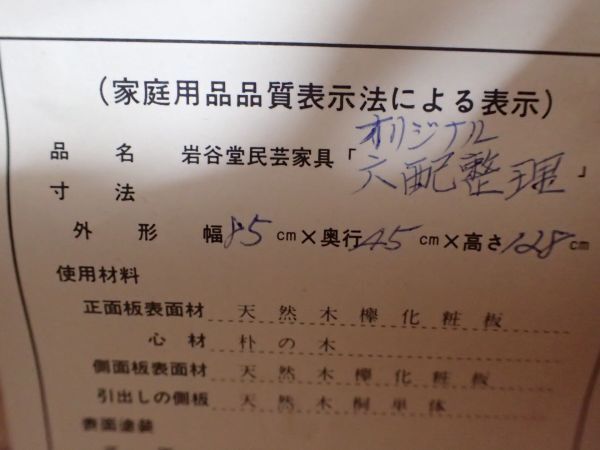 (家庭用品品質表示法による表示)
品名 岩谷堂民芸家具「オリジナル
六配整理」
寸法
外形 幅85cm×奥行45cm×高さ128cm
使用材料
正面板表面材 天然木欅化粧板
心材 朴の木
側面板表面材 天然木欅化粧板
引出しの側板 天然木桐単体
表面塗装